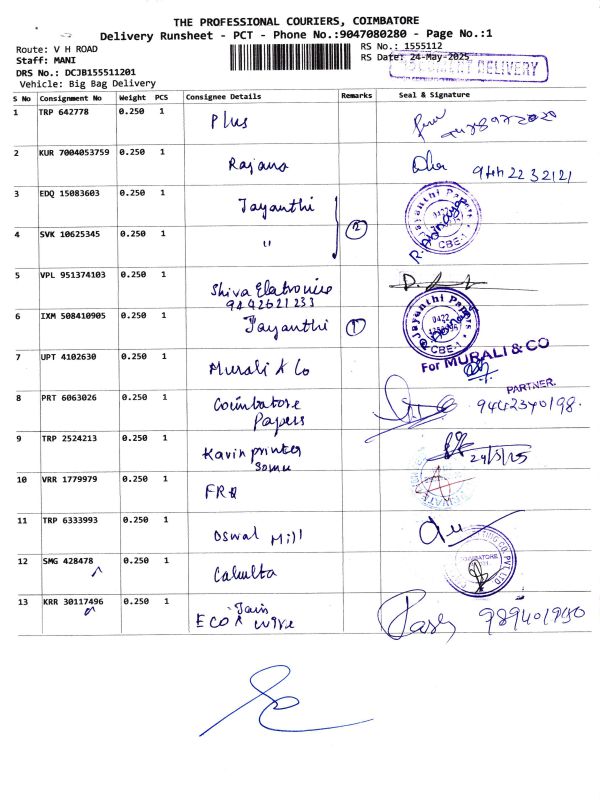 THE PROFESSIONAL COURIERS, COIMBATORE
Delivery Runsheet - PCT - Phone No.:9047080280 - Page No.:1
Route: V H ROAD
RS No.: 1555112
Staff: MANI
RS Date: 24-May-2025
DRS No.: DCJB155511201
DELIVERY
Vehicle: Big Bag Delivery
S No Consignment No Weight PCS Consignee Details Remarks Seal & Signature
1 TRP 642778 0.250 1 Plus
2 KUR 7004053759 0.250 1 Rajans
3 EDQ 15083603 0.250 1 Jayanthi Jayanthi Papers
4 SVK 10625345 0.250 1 " 2 CBE-1
5 VPL 951374103 0.250 1 Shiva Elatronics
9442621233
6 IXM 508410905 0.250 1 Jayanthi 1 Jayanthi Papers 0422 CBE-1
7 UPT 4102630 0.250 1 Murali & Co For MURALI & CO
PARTNER.
8 PRT 6063026 0.250 1 Coimbatore Papers 9442340198.
9 TRP 2524213 0.250 1 Kavin printer 24/5/25
10 VRR 1779979 0.250 1
11 TRP 6333993 0.250 1 Oswal Mill
12 SMG 428478 0.250 1 Calculta
13 KRR 30117496 0.250 1 Jain